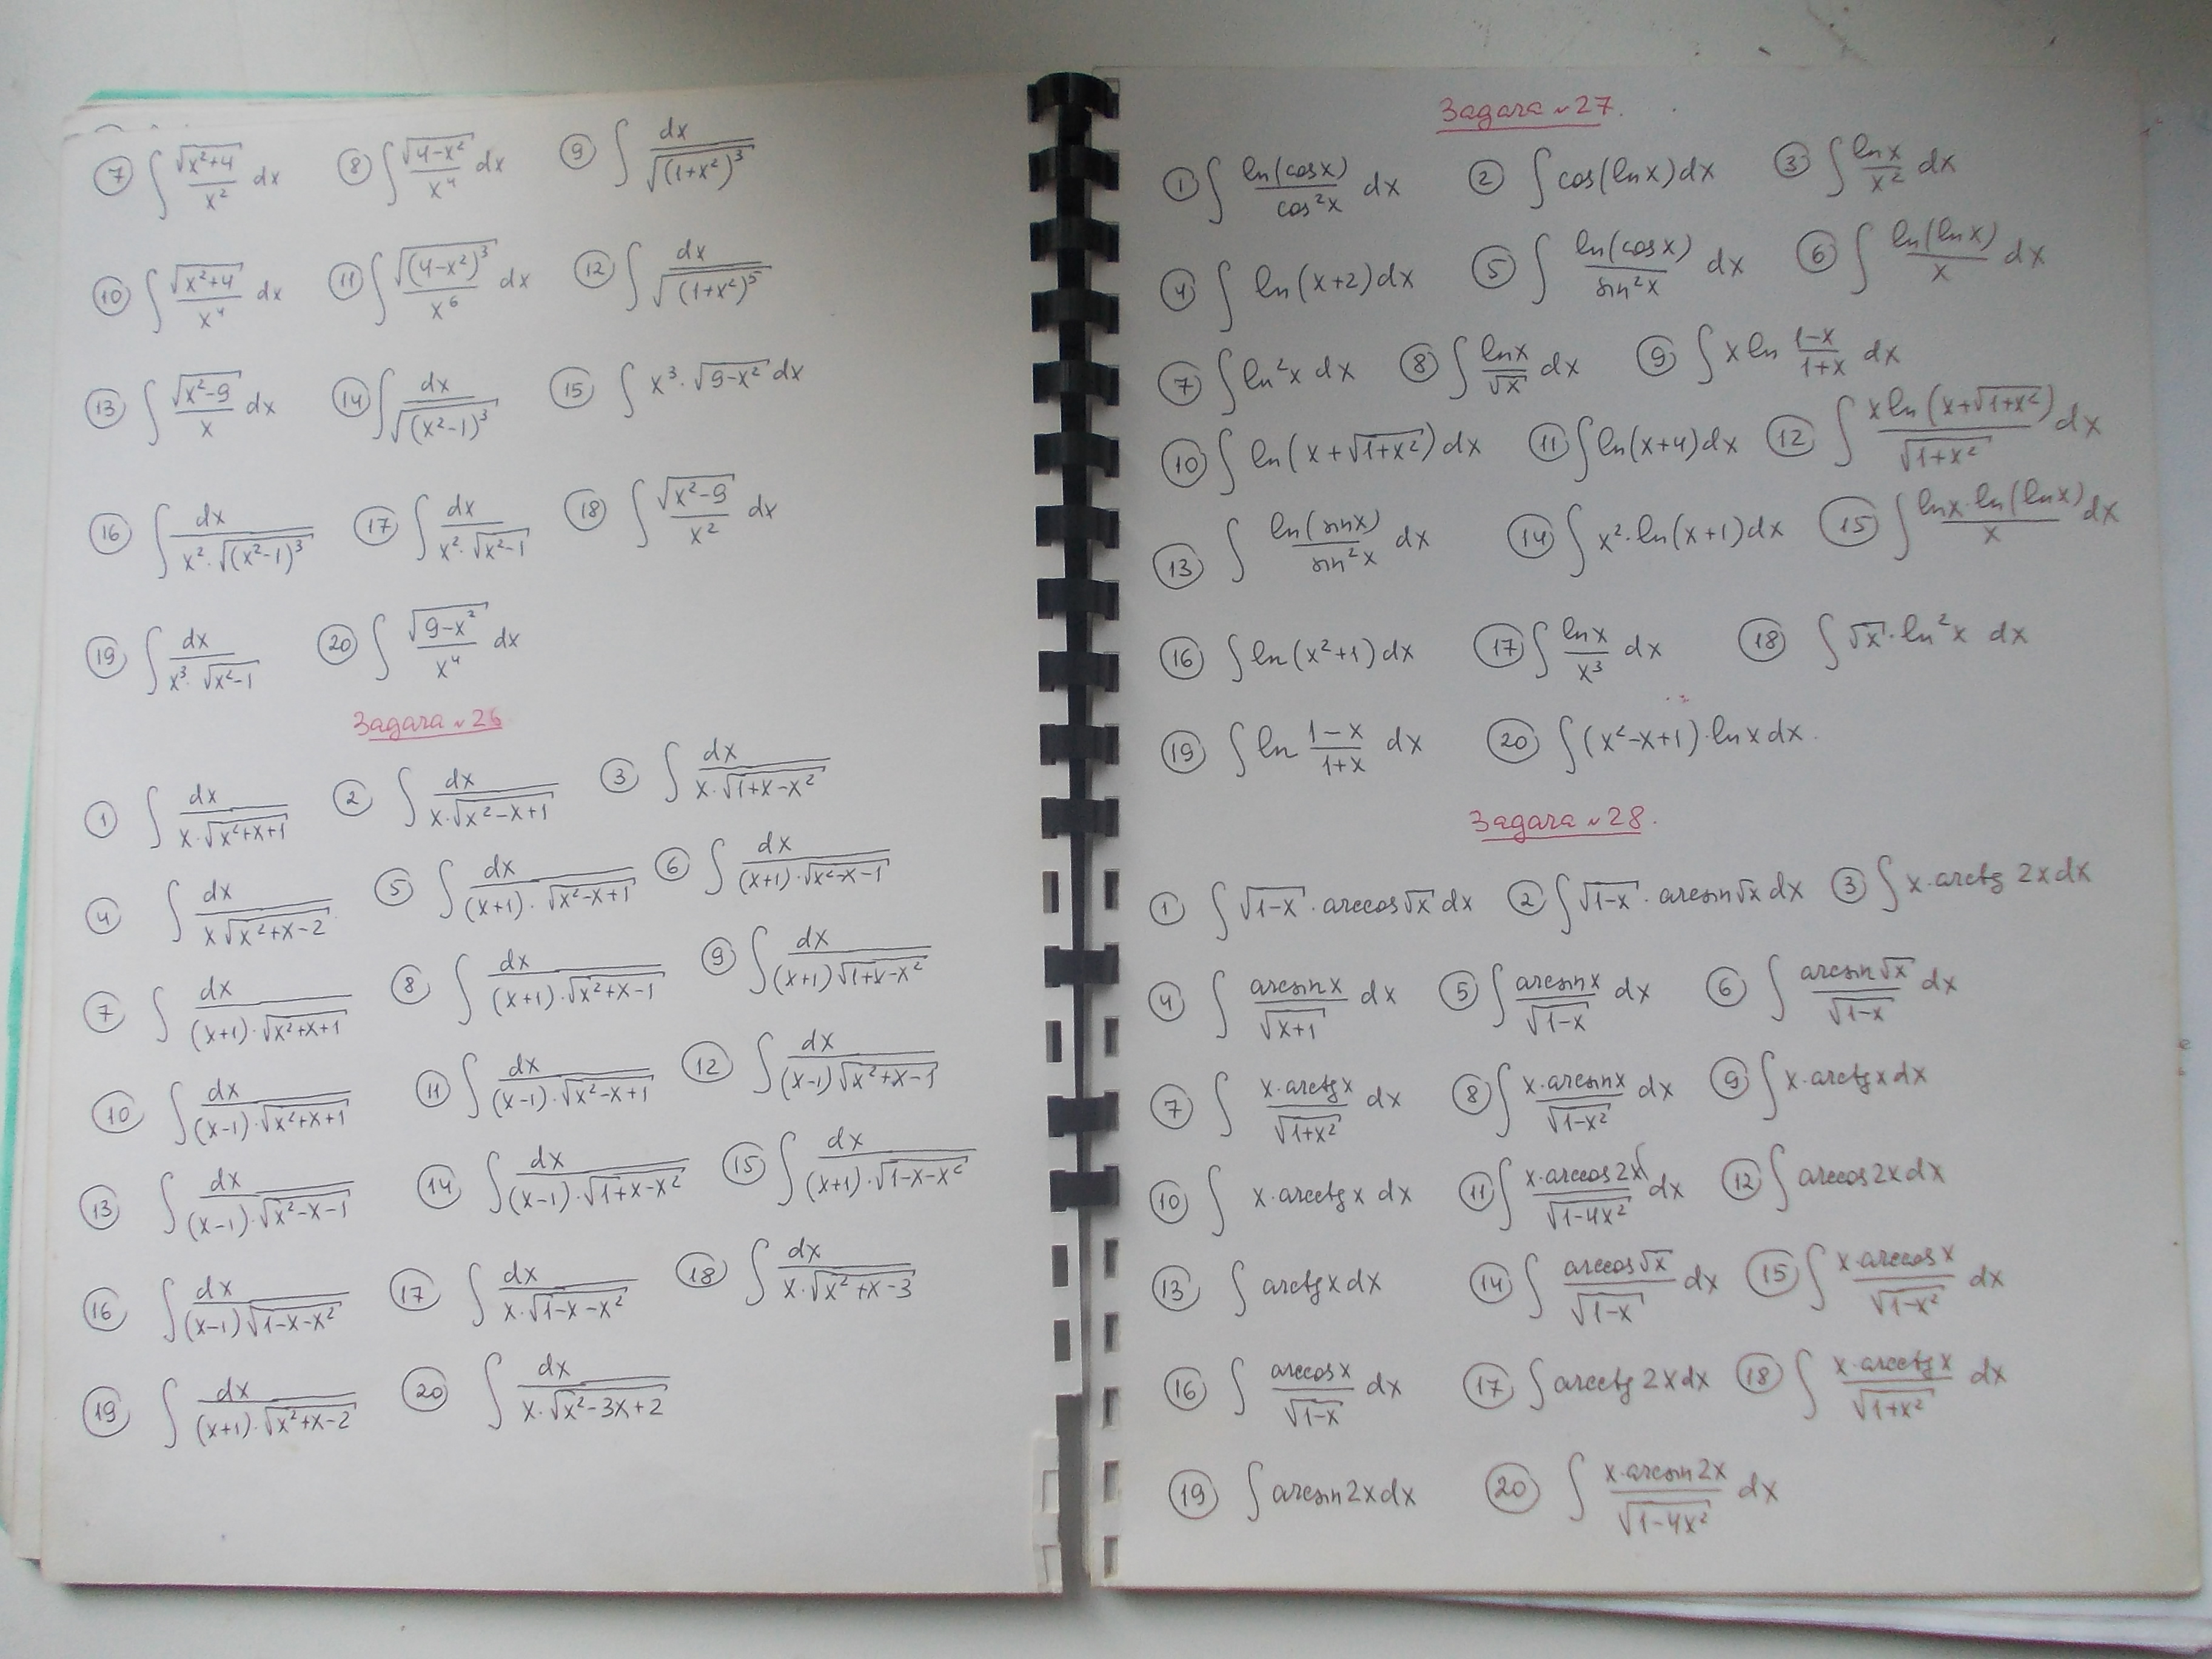 ⑦ ∫ √(x²+4)/x² dx ⑧ ∫ √(4-x²)/x⁴ dx ⑨ ∫ dx/√((1+x²)³)
⑩ ∫ √(x²+4)/x⁴ dx ⑪ ∫ √((4-x²)³)/x⁶ dx ⑫ ∫ dx/√((1+x²)⁵)
⑬ ∫ √(x²-9)/x dx ⑭ ∫ dx/√((x²-1)³) ⑮ ∫ x³·√(9-x²) dx
⑯ ∫ dx/(x²·√((x²-1)³)) ⑰ ∫ dx/(x²·√(x²-1)) ⑱ ∫ √(x²-9)/x² dx
⑲ ∫ dx/(x³·√(x²-1)) ⑳ ∫ √(9-x²)/x⁴ dx
Задача №26
① ∫ dx/(x·√(x²+x+1)) ② ∫ dx/(x·√(x²-x+1)) ③ ∫ dx/(x·√(1+x-x²))
④ ∫ dx/(x√(x²+x-2)) ⑤ ∫ dx/((x+1)·√(x²-x+1)) ⑥ ∫ dx/((x+1)·√(x²-x-1))
⑦ ∫ dx/((x+1)·√(x²+x+1)) ⑧ ∫ dx/((x+1)·√(x²+x-1)) ⑨ ∫ dx/((x+1)√(1+x-x²))
⑩ ∫ dx/((x-1)·√(x²+x+1)) ⑪ ∫ dx/((x-1)·√(x²-x+1)) ⑫ ∫ dx/((x-1)√(x²+x-1))
⑬ ∫ dx/((x-1)·√(x²-x-1)) ⑭ ∫ dx/((x-1)·√(1+x-x²)) ⑮ ∫ dx/((x+1)·√(1-x-x²))
⑯ ∫ dx/((x-1)√(1-x-x²)) ⑰ ∫ dx/(x·√(1-x-x²)) ⑱ ∫ dx/(x·√(x²+x-3))
⑲ ∫ dx/((x+1)·√(x²+x-2)) ⑳ ∫ dx/(x·√(x²-3x+2))
Задача №27.
① ∫ ln(cosx)/cos²x dx ② ∫ cos(lnx)dx ③ ∫ lnx/x² dx
④ ∫ ln(x+2)dx ⑤ ∫ ln(cosx)/sin²x dx ⑥ ∫ ln(lnx)/x dx
⑦ ∫ ln²x dx ⑧ ∫ lnx/√x dx ⑨ ∫ x ln (1-x)/(1+x) dx
⑩ ∫ ln(x+√(1+x²))dx ⑪ ∫ ln(x+4)dx ⑫ ∫ x ln(x+√(1+x²))/√(1+x²) dx
⑬ ∫ ln(sinx)/sin²x dx ⑭ ∫ x²·ln(x+1)dx ⑮ ∫ lnx·ln(lnx)/x dx
⑯ ∫ ln(x²+1)dx ⑰ ∫ lnx/x³ dx ⑱ ∫ √x·ln²x dx
⑲ ∫ ln (1-x)/(1+x) dx ⑳ ∫ (x²-x+1)·lnx dx.
Задача №28.
① ∫ √(1-x)·arccos√x dx ② ∫ √(1-x)·arcsin√x dx ③ ∫ x·arcctg 2x dx
④ ∫ arcsinx/√(x+1) dx ⑤ ∫ arcsinx/√(1-x) dx ⑥ ∫ arcsin√x/√(1-x) dx
⑦ ∫ x·arctgx/√(1+x²) dx ⑧ ∫ x·arcsinx/√(1-x²) dx ⑨ ∫ x·arctgx dx
⑩ ∫ x·arcctgx dx ⑪ ∫ x·arccos2x/√(1-4x²) dx ⑫ ∫ arccos2x dx
⑬ ∫ arctgx dx ⑭ ∫ arccos√x/√(1-x) dx ⑮ ∫ x·arccosx/√(1-x²) dx
⑯ ∫ arccosx/√(1-x) dx ⑰ ∫ arcctg 2x dx ⑱ ∫ x·arcctgx/√(1+x²) dx
⑲ ∫ arcsin2x dx ⑳ ∫ x·arcsin2x/√(1-4x²) dx